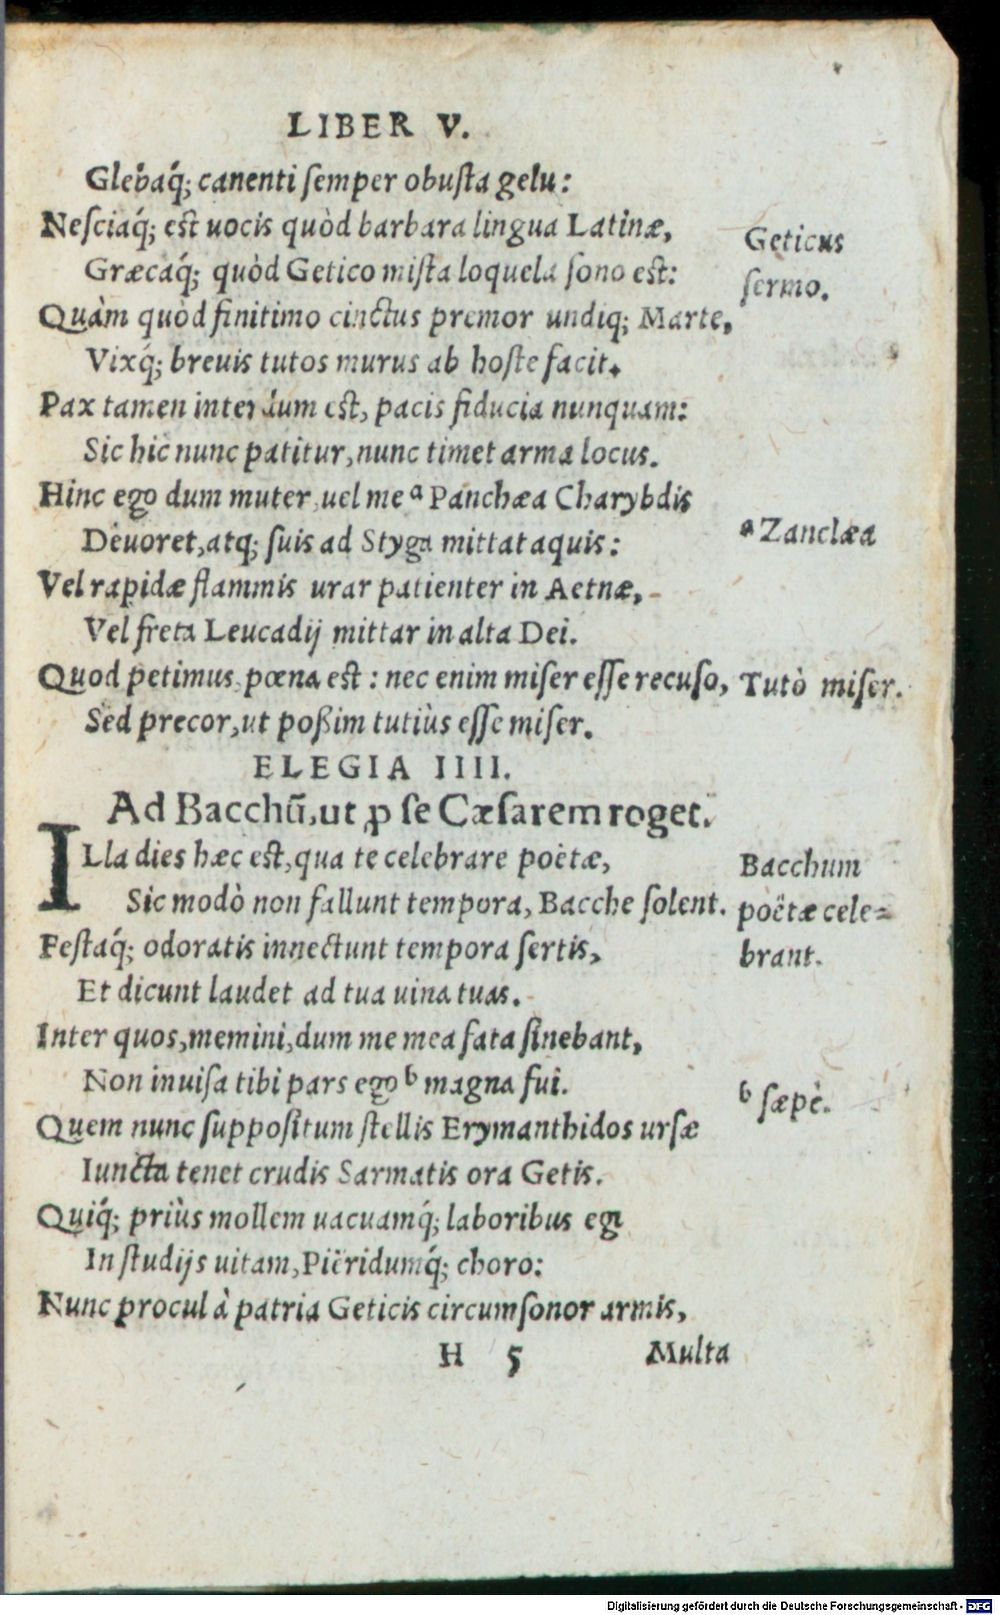 LIBER V.
Glebaq́; canenti ſemper obuſta gelu:
Neſciaq́; est uocis quòd barbara lingua Latinæ,
Græcaq́; quòd Getico miſta loquela ſono est:
Quàm quòd finitimo cinctus premor undiq; Marte,
Vixq́; breuis tutos murus ab hoſte facit.
Pax tamen interdum est, pacis fiducia nunquam:
Sic hic nunc patitur, nunc timet arma locus.
Hinc ego dum muter, uel me ᵃ Panchæa Charybdis
Deuoret, atq; ſuis ad Styga mittat aquis:
Vel rapidæ flammis urar patienter in Aetnæ,
Vel freta Leucadij mittar in alta Dei.
Quod petimus, pœna est: nec enim miſer eſſe recuſo,
Sed precor, ut poßim tutiùs eſſe miſer.
Geticus
ſermo.
ᵃ Zanclæa
Tutò miſer.
ELEGIA IIII.
Ad Bacchũ, ut ꝓ ſe Cæſarem roget.
ILla dies hæc est, qua te celebrare poëtæ,
Sic modò non fallunt tempora, Bacche ſolent.
Feſtaq́; odoratis innectunt tempora ſertis,
Et dicunt laudet ad tua uina tuas.
Inter quos, memini, dum me mea fata ſinebant,
Non inuiſa tibi pars ego ᵇ magna fui.
Quem nunc ſuppoſitum ſtellis Erymanthidos urſæ
Iuncta tenet crudis Sarmatis ora Getis.
Quiq́; priùs mollem uacuamq́; laboribus egi
In ſtudijs uitam, Piëridumq́; choro:
Nunc procul à patria Geticis circumſonor armis,
Bacchum
poëtæ cele=
brant.
ᵇ ſæpè.
H 5 Multa
Digitalisierung gefördert durch die Deutsche Forschungsgemeinschaft - DFG